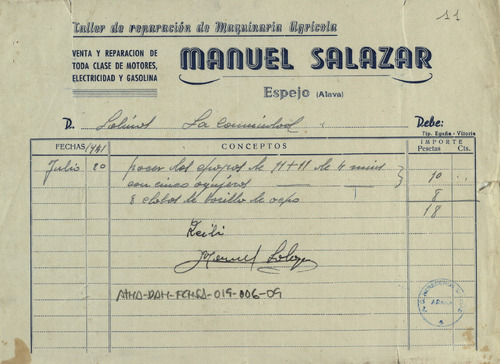 11
Taller de reparación de Maquinaria Agrícola
VENTA Y REPARACION DE
TODA CLASE DE MOTORES,
ELECTRICIDAD Y GASOLINA
MANUEL SALAZAR
Espejo (Alava)
D. Salinas La comunidad Debe:
Tip. Egaña - Vitoria
FECHAS 1941 CONCEPTOS IMPORTE
Pesetas Cts.
Julio 20 de 11+11 de 4 mm
con cinco agujeros 10
8 clabos de de 8
18
Recibi
Manuel
AMA-DAH-FCHSA-019-006-09